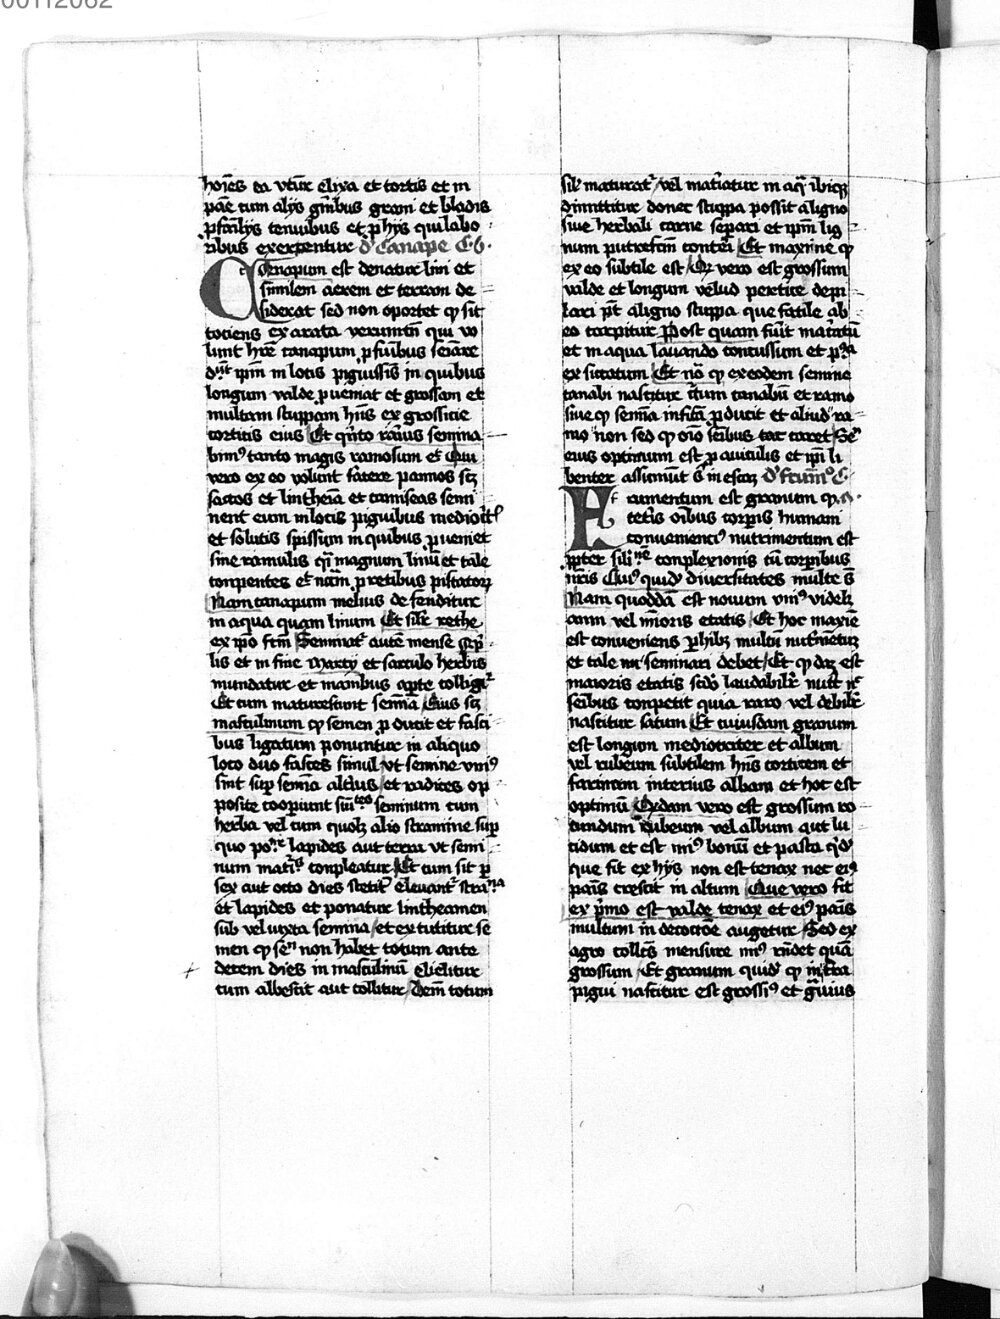 00112062
hoīes ea vtūr elixa et tortis et in
pāe cum alijs grānibus grani et bladis
p̱sertīs tenuibus et p̱ hijs qui labo
ribus exercentur de Canape C. 6.
Canapum est denatur lini et
similem aerem et terram de
siderat sed non oportet ꝙ sit
tociens exarata verumtn̄ qui vo
lunt hr̄e canapum p̱ funibus
ip̄m in locis pīguissīs in quibus
longum valde p̱ueniat et grossam et
multam stuppam hn̄s ex grossicie
corticis eius Et qn̄to rarius semina
bit᷒ tanto magis ramosum est Qui
vero ex eo volunt facere pannos scꝫ
saccos et linthea et camiseas semi
nent eum in locis piguibus mediocͥt
et solutis spissum in quibus p̱ueniet
sine ramulis qͣi magnum linū et tale
conpentes est p̱ retibus piscatorꝝ
Nam canapum melius defenditur
in aqua quam linum Et silr̄ rethe
ex ip̄o fcm̄ Seminat᷒ autē mense
lis et in fine Marcij et sarculo herbis
mundatur et manibus apte colligit᷒
Et cum maturescunt semīa Eius scꝫ
masculinum ꝙ semen p̱ducit et fasci
bus ligatum ponuntur in aliquo
loco duo fasces simul vt semine vniꝰ
sint sup̱ semīa alterius et radices op
posite cooꝑiunt seminum cum
herba vel cum quolꝫ alio stramine sup̱
quo lapides aut terra vt semi
num conpleatur Et cum sit p̱
sex aut octo dies stetit Eleuant᷒ stramīa
et lapides et ponatur lintheamen
sub vel iuxta semina et excutitur se
men ꝙ sen̄ non habet totum ante
decem dies in masculinū Elicitur
cum albescit aut collitur Dem̄ totum
sil᷒ maturat᷒ vel matiatur in aqͣ ibiqꝫ
dimittitur donec stuppa possit a ligno
siue herbali carne sep̱ari et ip̄m lig
num putrefcm̄ conteri Et maxime ꝙ
ex eo subtile est Qꝛ vero est grossum
valde et longum velud pertice depi
lari pt̄ a ligno stuppa que facile ab
eo carpitur Post quam fuit maceratū
et in aqua lauando concussum et p̱ea
exsiccatum Et nō ꝙ ex eodem semine
canabi nascitur tum canabū et ramo
siue ꝙ semīa infīta p̱ducit et aliud ra
mo non sed ꝙ oīo seībus caret Sen̄
eius optimum est p̱ auiculis et ip̄i li
benter assumūt in escaꝫ De frumēto C.
Frumentum est granum ꝙ p̱
ceteris oībus corp̱is humani
conuenienciꝰ nutrimentum est
p̱pter complexionis cū corp̱ibus
nr̄is Cuiꝰ quidē diuersitates multe sunt
Nam quoddā est nouum vniꝰ videlꝫ
anni vel minoris etatis Et hoc maxīe
est conueniens p̱ hibꝫ multū nutrietur
et tale seminari debet Et ꝙdaꝫ est
maioris etatis scd̄o laudabilr̄
seībus conpetit quia raro vel debilr̄
nascitur satum Et cuiusdam granum
est longum mediocriter et album
vel rubeum subtilem hn̄s corticem et
farinam interius albam et hoc est
optimū Qꝛdam vero est grossum ro
tundum rubeum vel album aut lu
cidum et est miꝰ bonū et pasta qͥdē
que fit ex hijs non est tenax nec eiꝰ
panis crescit in altum Que vero fit
ex p̱mo est valde tenax et eiꝰ panis
multum in decocōe augetur Sed ex
agro collcs̄ mensure miꝰ rn̄det quā
grossum Et granum quidē ꝙ in terra
pigui nascitur est grossiꝰ et grauius